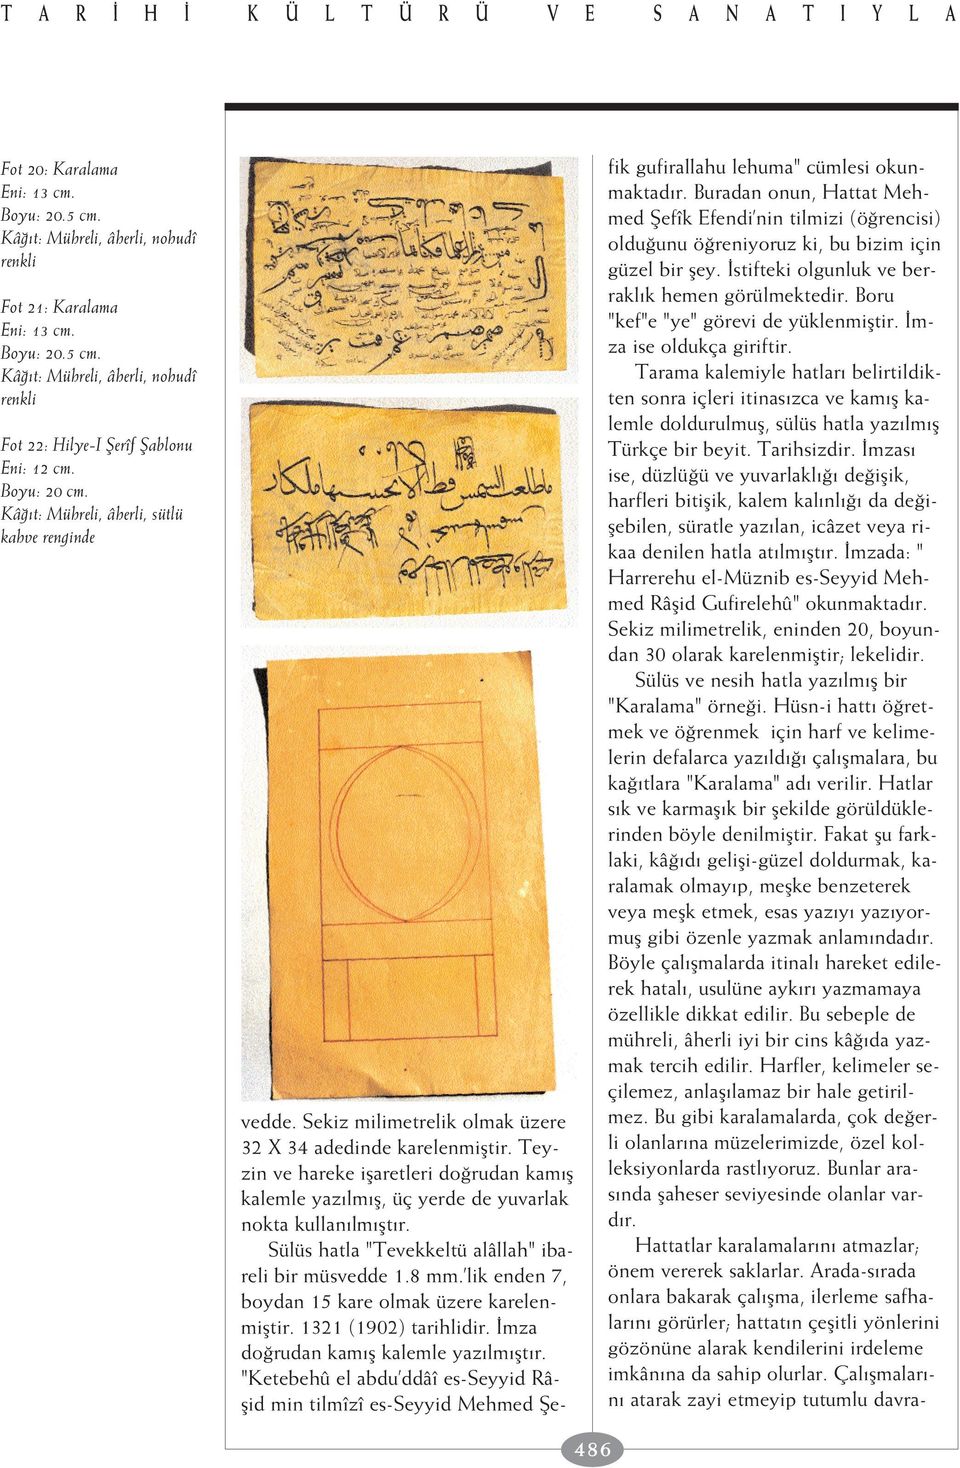 TARİHİ KÜLTÜRÜ VE SANATIYLA
Fot 20: Karalama
Eni: 13 cm.
Boyu: 20.5 cm.
Kâğıt: Mühreli, âherli, nohudî
renkli
Fot 21: Karalama
Eni: 13 cm.
Boyu: 20.5 cm.
Kâğıt: Mühreli, âherli, nohudî
renkli
Fot 22: Hilye-I Şerîf Şablonu
Eni: 12 cm.
Boyu: 20 cm.
Kâğıt: Mühreli, âherli, sütlü
kahve renginde
vedde. Sekiz milimetrelik olmak üzere
32 X 34 adedinde karelenmiştir. Tey-
zin ve hareke işaretleri doğrudan kamış
kalemle yazılmış, üç yerde de yuvarlak
nokta kullanılmıştır.
Sülüs hatla "Tevekkeltü alâllah" iba-
reli bir müsvedde 1.8 mm.'lik enden 7,
boydan 15 kare olmak üzere karelen-
miştir. 1321 (1902) tarihlidir. İmza
doğrudan kamış kalemle yazılmıştır.
"Ketebehû el abdu'ddâî es-Seyyid Râ-
şid min tilmîzî es-Seyyid Mehmed Şe-
fik gufirallahu lehuma" cümlesi okun-
maktadır. Buradan onun, Hattat Meh-
med Şefîk Efendi'nin tilmizi (öğrencisi)
olduğunu öğreniyoruz ki, bu bizim için
güzel bir şey. İstifteki olgunluk ve ber-
raklık hemen görülmektedir. Boru
"kef"e "ye" görevi de yüklenmiştir. İm-
za ise oldukça giriftir.
Tarama kalemiyle hatları belirtildik-
ten sonra içleri itinasızca ve kamış ka-
lemle doldurulmuş, sülüs hatla yazılmış
Türkçe bir beyit. Tarihsizdir. İmzası
ise, düzlüğü ve yuvarlaklığı değişik,
harfleri bitişik, kalem kalınlığı da deği-
şebilen, süratle yazılan, icâzet veya ri-
kaa denilen hatla atılmıştır. İmzada: "
Harrerehu el-Müznib es-Seyyid Meh-
med Râşid Gufirelehû" okunmaktadır.
Sekiz milimetrelik, eninden 20, boyun-
dan 30 olarak karelenmiştir; lekelidir.
Sülüs ve nesih hatla yazılmış bir
"Karalama" örneği. Hüsn-i hattı öğret-
mek ve öğrenmek için harf ve kelime-
lerin defalarca yazıldığı çalışmalara, bu
kağıtlara "Karalama" adı verilir. Hatlar
sık ve karmaşık bir şekilde görüldükle-
rinden böyle denilmiştir. Fakat şu fark-
laki, kâğıdı gelişi-güzel doldurmak, ka-
ralamak olmayıp, meşke benzeterek
veya meşk etmek, esas yazıyı yazıyor-
muş gibi özenle yazmak anlamındadır.
Böyle çalışmalarda itinalı hareket edile-
rek hatalı, usulüne aykırı yazmamaya
özellikle dikkat edilir. Bu sebeple de
mühreli, âherli iyi bir cins kâğıda yaz-
mak tercih edilir. Harfler, kelimeler se-
çilemez, anlaşılamaz bir hale getiril-
mez. Bu gibi karalamalarda, çok değer-
li olanlarına müzelerimizde, özel kol-
leksiyonlarda rastlıyoruz. Bunlar ara-
sında şaheser seviyesinde olanlar var-
dır.
Hattatlar karalamalarını atmazlar;
önem vererek saklarlar. Arada-sırada
onlara bakarak çalışma, ilerleme safha-
larını görürler; hattatın çeşitli yönlerini
gözönüne alarak kendilerini irdeleme
imkânına da sahip olurlar. Çalışmaları-
nı atarak zayi etmeyip tutumlu davra-
486